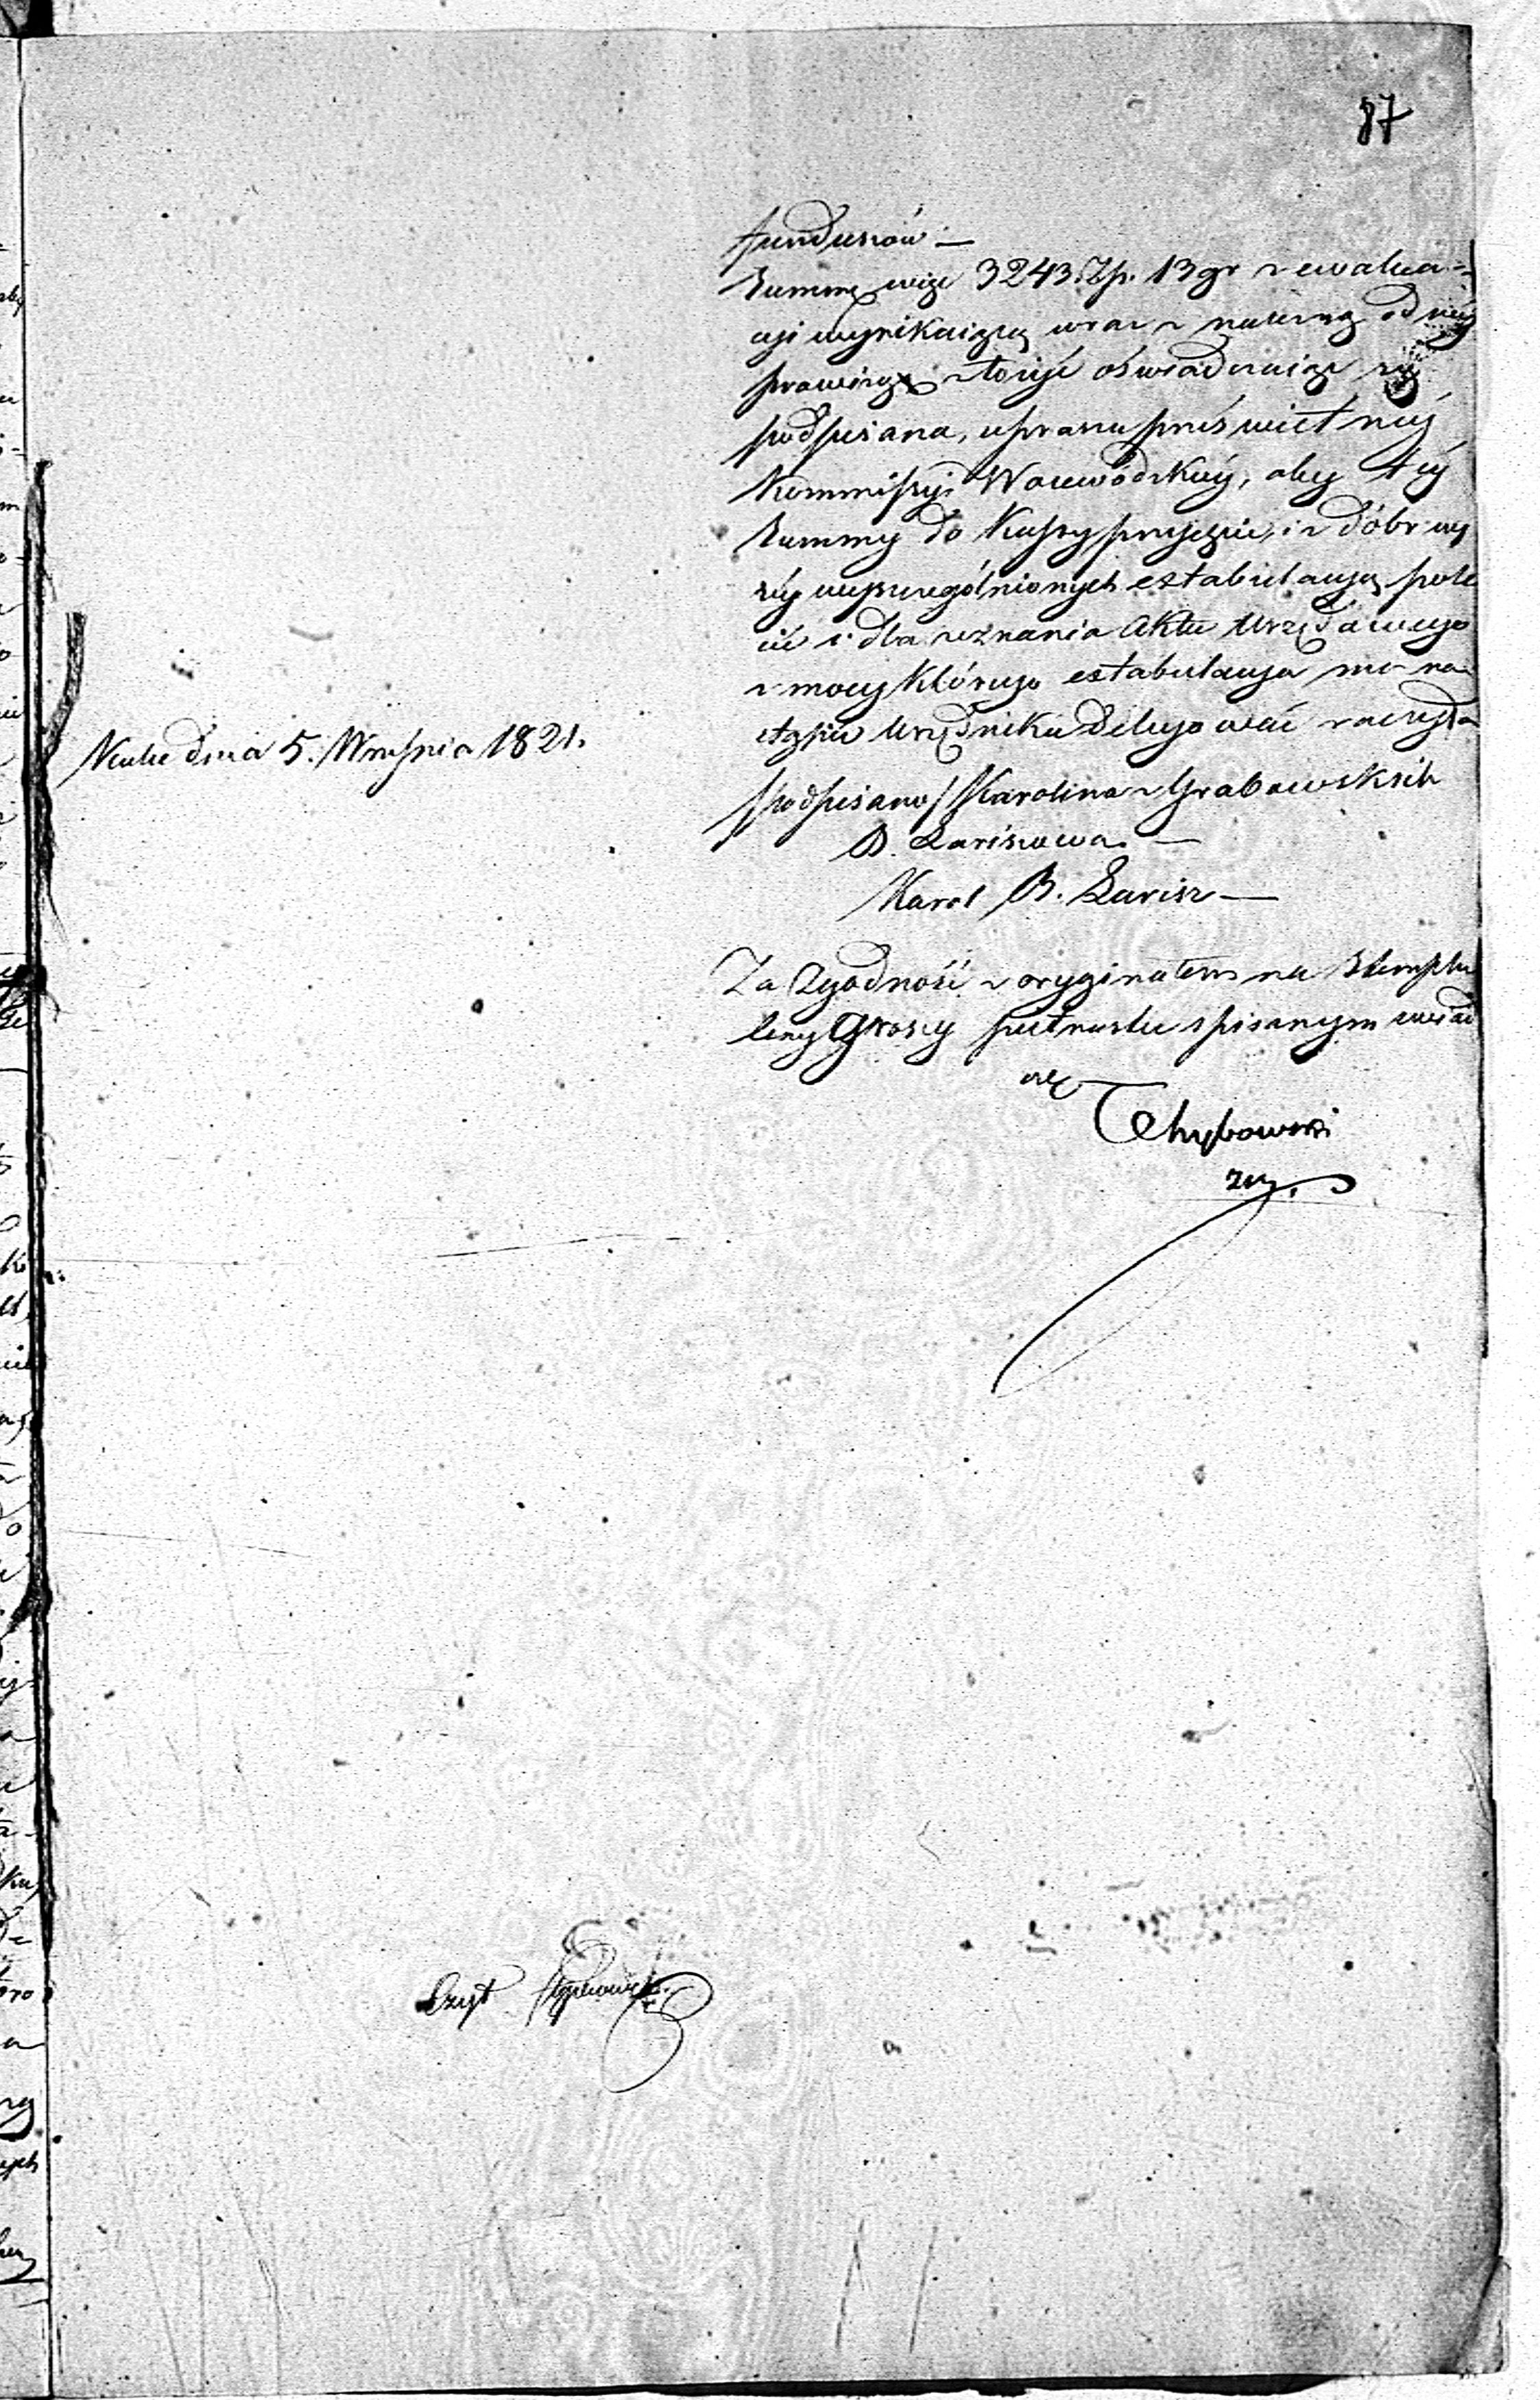 87
funduszów. —
Summę więc 3243 Zp. 13 gr z ewalua-
cyi wynikaiącą wraz z należną od niéy
prowizyą złożyć oświadczaiąc się
podpisana, uprasza prześwietnéy
Kommissyi Woiewódzkiéy, aby téy
Summy do Kassy przyięcie, i z dóbr wy
żéy wyszczególnionych extabulacyą pole
cić i dla zeznania Aktu Urzędowego
z mocy którego extabulacya ma na
stąpić Urzędnika delegować raczyła
Nculce dnia 5. Września 1821.
/podpisano/ Karolina z Grabowskich
B. Lariszowa. —
Karol B. Larisz —
Za Zgodność z oryginałem na Stemplu
ceny Groszy piętnastu spisanym świad
czę
Chybowski
Czyt